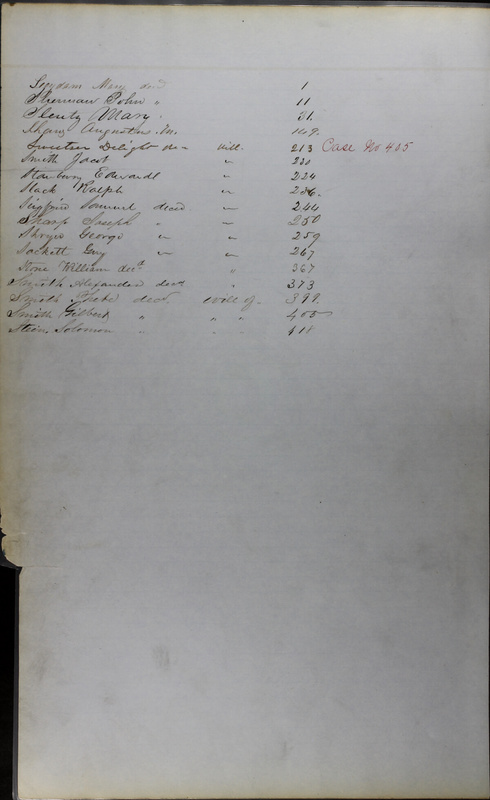 Suydam Mary decd 1
Sherman John " 11
Mary. 31.
Augustus M. 169.
Delight de" will. 213 Case No 405
Smith Jacob " 220
Stanbury Edward " 224
Slack Ralph " 236.
Samuel decd. " 244
Sharp Joseph " " 250
George " " 259
Sackett Guy " " 267
Stone William decd " 367
Smith Alexander decd " 373
Smith decd will of. 399.
Smith Gilbert " " " 405
Solomon " " " 418